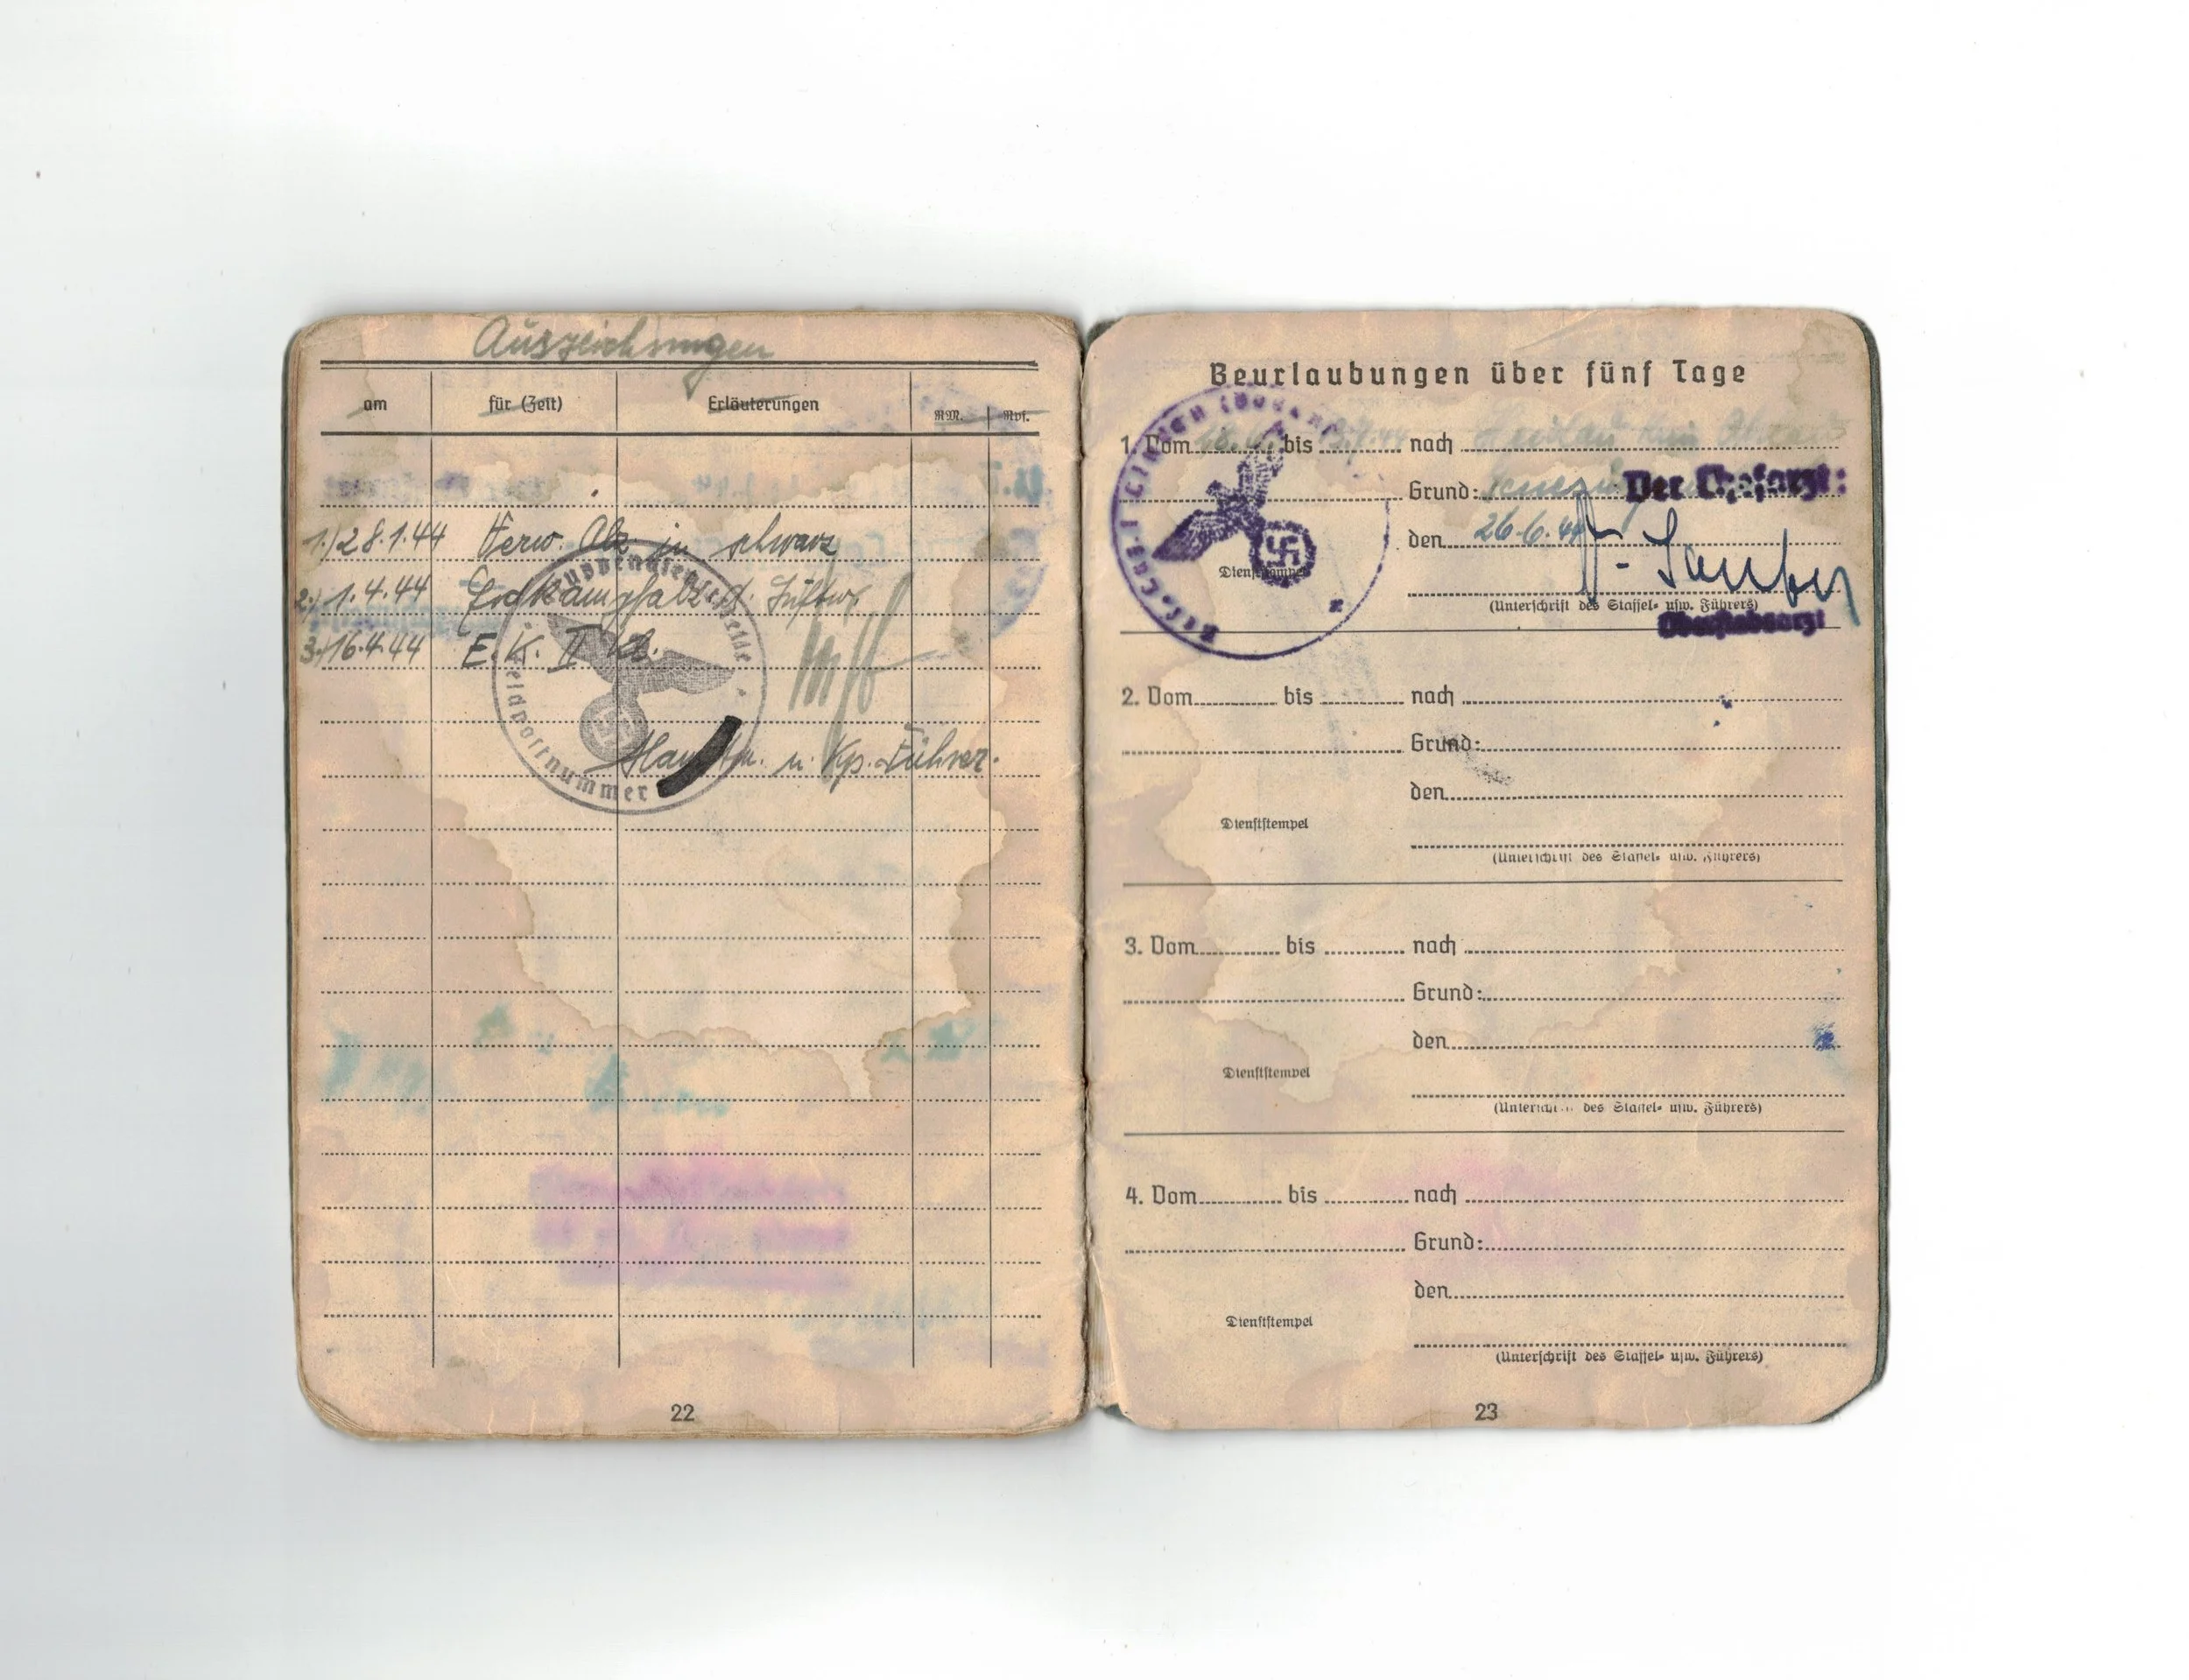 Auszeichnungen
am für (Zeit) Erläuterungen RM. Rpf.
1.) 28.1.44 Verw. Abz. in schwarz
2.) 1.4.44 Erdkampfabz. d. Luftw.
3.) 16.4.44 E.K. II Kl.
Feldpostnummer
u. Kp. Führer.
22
Beurlaubungen über fünf Tage
1. Vom bis nach
Grund: Der Chefarzt:
den 26.6.44
Dienststempel
(Unterschrift des Staffel- usw. Führers)
Oberstabsarzt
2. Vom bis nach
Grund:
den
Dienststempel
(Unterschrift des Staffel- usw. Führers)
3. Vom bis nach
Grund:
den
Dienststempel
(Unterschrift des Staffel- usw. Führers)
4. Vom bis nach
Grund:
den
Dienststempel
(Unterschrift des Staffel- usw. Führers)
23